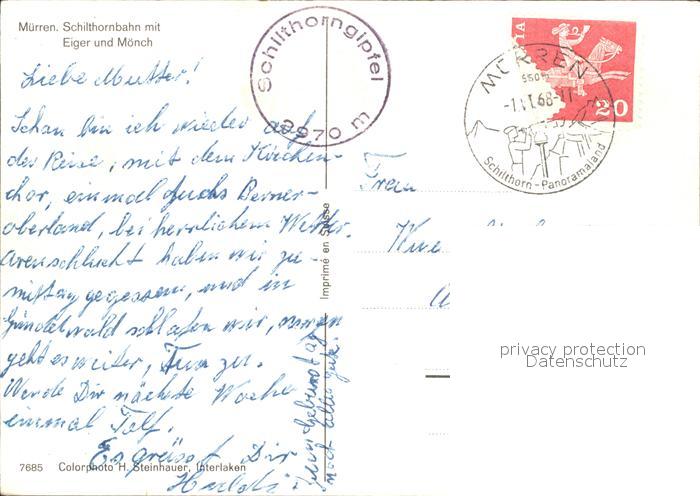 Mürren. Schilthornbahn mit
Eiger und Mönch
Liebe Mutter!
Schon bin ich wieder auf
der Reise, mit dem Kirchen-
chor, einmal durchs Berner-
oberland, bei herrlichem Wetter.
Areuschlucht haben wir zu-
mittag gegessen, und in
Grindelwald schlafen wir, morgen
geht es weiter, Thun zu.
Werde Dir nächste Woche
einmal Telf.
Es grüsst Dir
zum Geburtstag
noch alles gute.
7685 Colorphoto H. Steinhauer, Interlaken
Imprimé en Suisse
Schilthorngipfel
2970 m
20
MÜRREN
Schilthorn-Panoramaland
Frau
privacy protection
Datenschutz